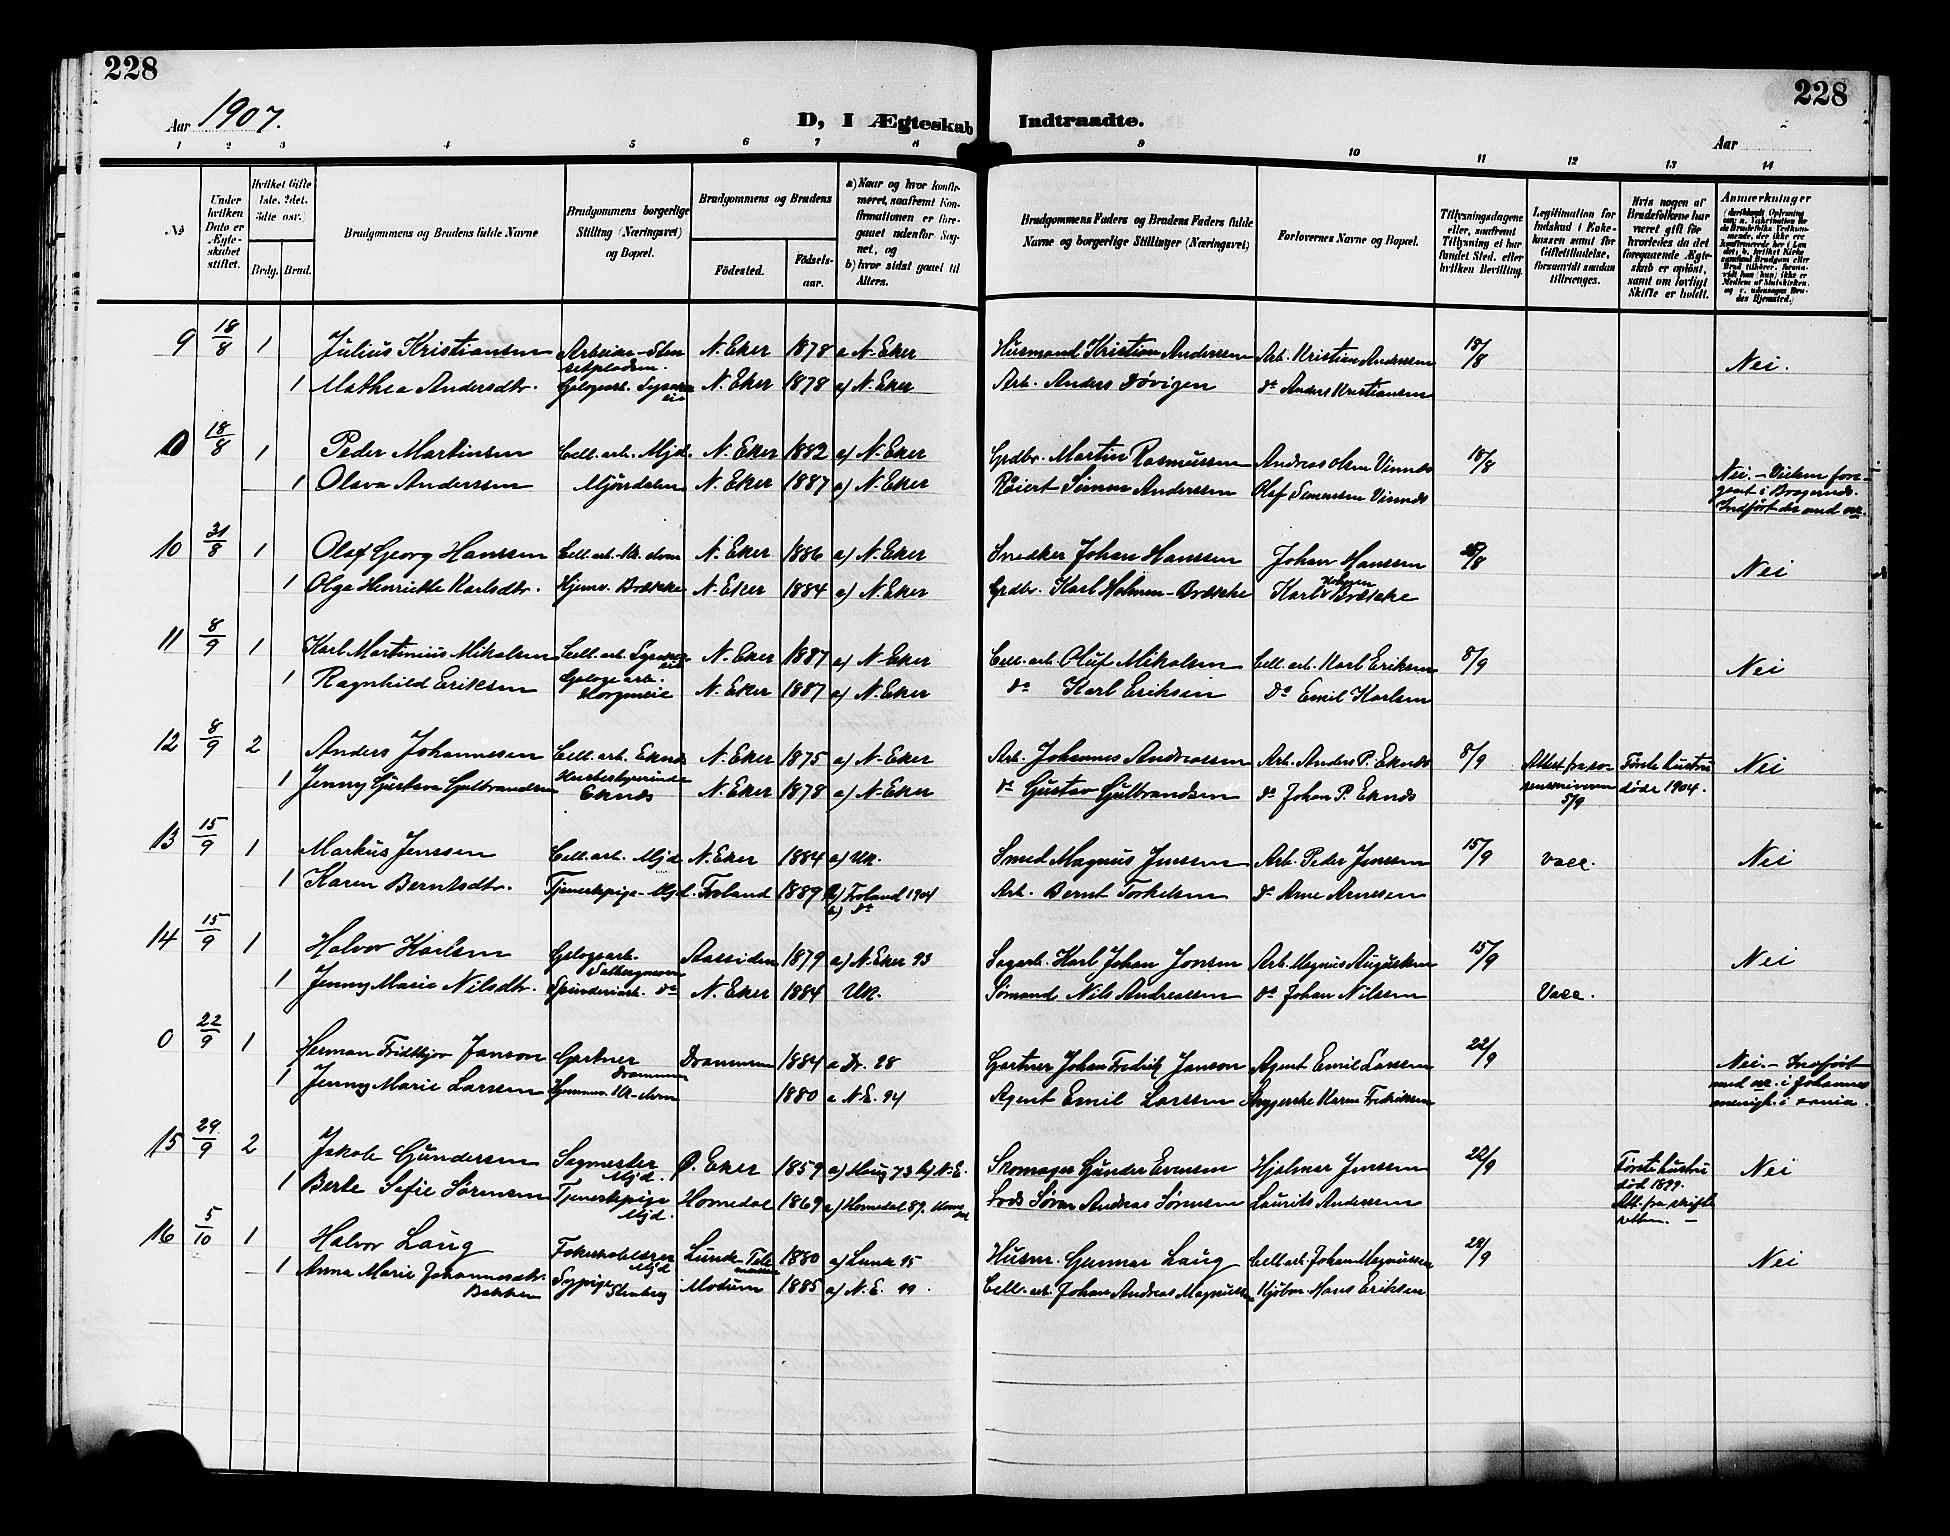 228
228
Aar 1907.
D, I Ægteskab Indtraadte.
Aar
1 2 3 4 5 6 7 8 9 10 11 12 13 14
No
Under hvilken Dato er Ægteskabet stiftet.
Hvilket Gifte 1ste, 2det, 3dte osv.
Brdg. Brud.
Brudgommens og Brudens fulde Navne
Brudgommens borgerlige Stilling (Næringsvei) og Bopæl.
Brudgommens og Brudens
Födested.
Födselsaar.
a) Naar og hvor konfirmeret, saafremt Konfirmationen er foregaaet udenfor Sognet, og
b) hvor sidst gaaet til Alters.
Brudgommens Faders og Brudens Faders fulde Navne og borgerlige Stillinger (Næringsvei)
Forlovernes Navne og Bopæl.
Tillysningsdagene eller, saafremt Tillysning ei har fundet Sted, efter hvilken Bevilling.
Legitimation for Indskud i Enkekassen samt for Giftetilladelse, forsaavidt saadan tiltrænges.
Hvis nogen af Brudefolkene har været gift för hvorledes da det foregaaende Ægteskab er oplöst, samt om lovligt Skifte er holdt.
Anmærkninger
9 18/8 1 Julius Kristiansen N. Eker 1878 a N. Eker Husmand Kristian Anderssen Arb. Kristian Anderssen 18/8 Nei.
1 Mathea Andersdtr. N. Eker 1878 a) N. Eker Arb. Anders Dövigen do Anders Kristiansen
10 18/8 1 Peder Martinsen Cell. arb. Mjd. N. Eker 1882 a) N. Eker Grdbr. Martin Rasmussen Andreas Olsen Vinnes 18/8
1 Olava Anderssen Mjöndalen N. Eker 1887 a) N. Eker Simon Anderssen Olaf Simensen Vinnes Nei. - Vielsen foregaat i Bragernes. Indfört der med nr.
10 31/8 1 Olaf Georg Hanssen N. Eker 1886 a) N. Eker Snedker Johan Hanssen Johan Hanssen Nei
1 Olga Henriette Karlsdtr. N. Eker 1884 a) N. Eker Grdbr. Karl Holmen-Bråskke Karl Holmen
11 8/9 1 Karl Martinius Mikalsen Cell. arb. N. Eker 1887 a) N. Eker Cell. arb. Oluf Mikalsen Cell. arb. Karl Eriksen 8/9 Nei
1 Ragnhild Eriksen N. Eker 1887 a) N. Eker do Karl Eriksen Do Emil Karlsen
12 8/9 2 Anders Johannesen Cell. arb. Eknes N. Eker 1875 a) N. Eker Arb. Johannes Andreassen Arb. Anders P. Eknes 8/9 Attest fra sorenskriveren 5/9 Förste hustru döde 1904. Nei
1 Jenny Gustava Gulbrandsen Eknes N. Eker 1878 a) N. Eker do Gustav Gulbrandsen do Johan P. Eknes
13 15/9 1 Markus Jenssen Cell. arb. Mjd. N. Eker 1884 a) Uk. Smed Magnus Jenssen Arb. Peder Jenssen 15/9 vacc. Nei
1 Karen Berntsdtr. Tjenestpige - Mjd. Froland 1889 a) Froland 1904 b) do Arb. Bernt Torkelsen do Arne Arnesen
14 15/9 1 Halvor Karlsen Aassiden 1879 a) N. Eker 93 Sagarb. Karl Johan Jonsen Arb. Magnus Augustsen 15/9 Nei
1 Jenny Marie Nilsdtr. Spinderiarb. do N. Eker 1884 Uk. Sömand Nils Andreassen do Johan Nilssen Vacc.
0 22/9 1 Herman Fridthjov Janson Gartner Drammen Drammen 1884 a Dr. 98 Gartner Johan Fredrik Janson Agent Emil Larssen 22/9 Nei. - Indfört med nr. i Johannes menigh. i
1 Jenny Marie Larssen 1880 a N. E. 94 Agent Emil Larssen Karen Fredriksen
15 29/9 2 Jakob Gundersen Sagmester Mjd. Ö. Eker 1859 a) Haug 73 b) N. E. Skomager Gunder Evensen Hjalmar Jenssen 22/9 Förste hustru död 1899. Att. fra skifteretten. - Nei
1 Berte Sofie Sörensen Tjenestpige Mjd. Homedal 1869 a) Homedal 87. Lods Sören Andreas Sörensen Laurits Anderssen
16 5/10 1 Halvor Laug Mjd Lunde - Telemarken 1880 a) Lunde 95 Husm. Gunnar Laug Cell. arb. Johan Magnussen 29/9 Nei
1 Anna Marie Johannesdtr. Bakken Sypige Stenberg Modum 1885 a) N. E. 99. Cell. arb. Johan Andreas Magnussen Kjöbm. Hans Eriksen